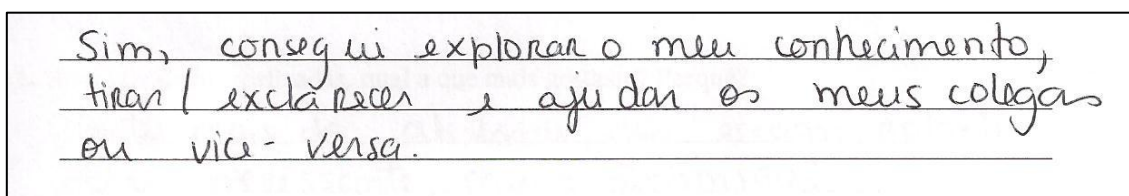 Sim, consegui explorar o meu conhecimento,
tirar/ exclárecer e ajudar os meus colegas
ou vice-versa.